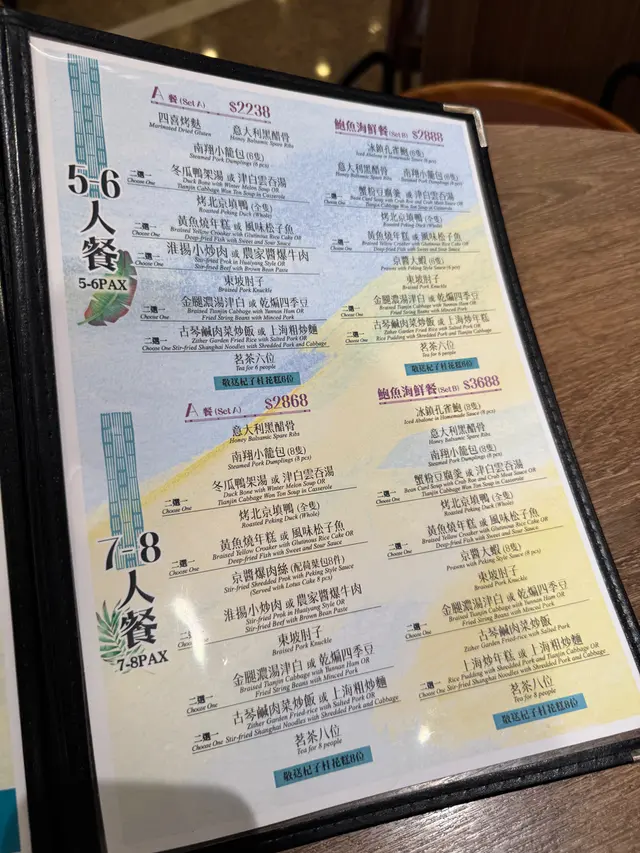 5-6
人
餐
5-6PAX
A 餐 (Set A) $2238
四喜烤麩
Marinated Dried Gluten
意大利黑醋骨
Honey Balsamic Spare Ribs
南翔小籠包 (6隻)
Steamed Pork Dumplings (6 pcs)
二選一
Choose One
冬瓜鴨架湯 或 津白雲吞湯
Duck Bone with Winter Melon Soup OR
Tianjin Cabbage Wan Ton Soup in Casserole
烤北京填鴨 (全隻)
Roasted Peking Duck (Whole)
二選一
Choose One
黃魚燒年糕 或 風味松子魚
Braised Yellow Croaker with Glutinous Rice Cake OR
Deep-fried Fish with Sweet and Sour Sauce
二選一
Choose One
淮揚小炒肉 或 農家醬爆牛肉
Stir-fried Prok in Huaiyang Style OR
Stir-fried Beef with Brown Bean Paste
東坡肘子
Braised Pork Knuckle
二選一
Choose One
金腿濃湯津白 或 乾煸四季豆
Braised Tianjin Cabbage with Yunnan Ham OR
Fried String Beans with Minced Pork
二選一
Choose One
古琴鹹肉菜炒飯 或 上海粗炒麵
Zither Garden Fried Rice with Salted Pork OR
Stir-fried Shanghai Noodles with Shredded Pork and Cabbage
茗茶六位
Tea for 6 people
敬送杞子桂花糕6位
鮑魚海鮮餐 (Set B) $2888
冰鎮孔雀鮑 (6隻)
Iced Abalone in Homemade Sauce (6 pcs)
意大利黑醋骨
Honey Balsamic Spare Ribs
南翔小籠包 (6隻)
Steamed Pork Dumplings (6 pcs)
二選一
Choose One
蟹粉豆腐羹 或 津白雲吞湯
Bean Curd Soup with Crab Roe and Crab Meat OR
Tianjin Cabbage Wan Ton Soup in Casserole
烤北京填鴨 (全隻)
Roasted Peking Duck (Whole)
二選一
Choose One
黃魚燒年糕 或 風味松子魚
Braised Yellow Croaker with Glutinous Rice Cake OR
Deep-fried Fish with Sweet and Sour Sauce
京醬大蝦 (6隻)
Prawns with Peking Style Sauce (6 pcs)
東坡肘子
Braised Pork Knuckle
二選一
Choose One
金腿濃湯津白 或 乾煸四季豆
Braised Tianjin Cabbage with Yunnan Ham OR
Fried String Beans with Minced Pork
二選一
Choose One
古琴鹹肉菜炒飯 或 上海炒年糕
Zither Garden Fried Rice with Salted Pork OR
Rice Pudding with Shredded Pork and Tianjin Cabbage
茗茶六位
Tea for 6 people
敬送杞子桂花糕6位
7-8
人
餐
7-8PAX
A 餐 (Set A) $2868
意大利黑醋骨
Honey Balsamic Spare Ribs
南翔小籠包 (8隻)
Steamed Pork Dumplings (8 pcs)
二選一
Choose One
冬瓜鴨架湯 或 津白雲吞湯
Duck Bone with Winter Melon Soup OR
Tianjin Cabbage Wan Ton Soup in Casserole
烤北京填鴨 (全隻)
Roasted Peking Duck (Whole)
二選一
Choose One
黃魚燒年糕 或 風味松子魚
Braised Yellow Croaker with Glutinous Rice Cake OR
Deep-fried Fish with Sweet and Sour Sauce
京醬爆肉絲 (配荷葉包8件)
Stir-fried Shredded Prok with Peking Style Sauce
(Served with Lotus Cake 8 pcs)
二選一
Choose One
淮揚小炒肉 或 農家醬爆牛肉
Stir-fried Prok in Huaiyang Style OR
Stir-fried Beef with Brown Bean Paste
東坡肘子
Braised Pork Knuckle
二選一
Choose One
金腿濃湯津白 或 乾煸四季豆
Braised Tianjin Cabbage with Yunnan Ham OR
Fried String Beans with Minced Pork
二選一
Choose One
古琴鹹肉菜炒飯 或 上海粗炒麵
Zither Garden Fried-rice with Salted Pork OR
Stir-fried Shanghai Noodles with Shredded Pork and Cabbage
茗茶八位
Tea for 8 people
敬送杞子桂花糕8位
鮑魚海鮮餐 (Set B) $3688
冰鎮孔雀鮑 (8隻)
Iced Abalone in Homemade Sauce (8 pcs)
意大利黑醋骨
Honey Balsamic Spare Ribs
南翔小籠包 (8隻)
Steamed Pork Dumplings (8 pcs)
二選一
Choose One
蟹粉豆腐羹 或 津白雲吞湯
Bean Curd Soup with Crab Roe and Crab Meat OR
Tianjin Cabbage Wan Ton Soup in Casserole
烤北京填鴨 (全隻)
Roasted Peking Duck (Whole)
二選一
Choose One
黃魚燒年糕 或 風味松子魚
Braised Yellow Croaker with Glutinous Rice Cake OR
Deep-fried Fish with Sweet and Sour Sauce
京醬大蝦 (8隻)
Prawns with Peking Style Sauce (8 pcs)
東坡肘子
Braised Pork Knuckle
二選一
Choose One
金腿濃湯津白 或 乾煸四季豆
Braised Tianjin Cabbage with Yunnan Ham OR
Fried String Beans with Minced Pork
古琴鹹肉菜炒飯
Zither Garden Fried-rice with Salted Pork
二選一
Choose One
上海炒年糕 或 上海粗炒麵
Rice Pudding with Shredded Pork and Tianjin Cabbage OR
Stir-fried Shanghai Noodles with Shredded Pork and Cabbage
茗茶八位
Tea for 8 people
敬送杞子桂花糕8位